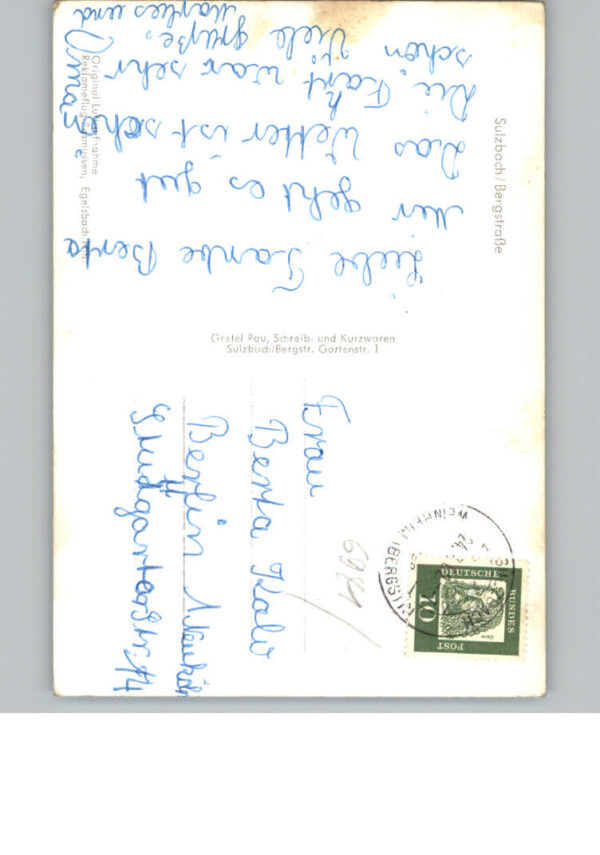 Sulzbach/Bergstraße
Liebe Tante Berta
Mir geht es gut
Das Wetter ist schön
Die Fahrt war sehr
schön
Viele Grüße,
Marlies und
Omas
Original Luftaufnahme
Reklameflug Rasmussen, Egelsbach
Gretel Rau, Schreib- und Kurzwaren
Sulzbach/Bergstr. Gartenstr. 1
Frau
Berta Kalv
Berlin 1 Neuköln
Stuttgarterstr. 14
WEINHEIM (BERGSTR)
DEUTSCHE
BUNDES
POST
10